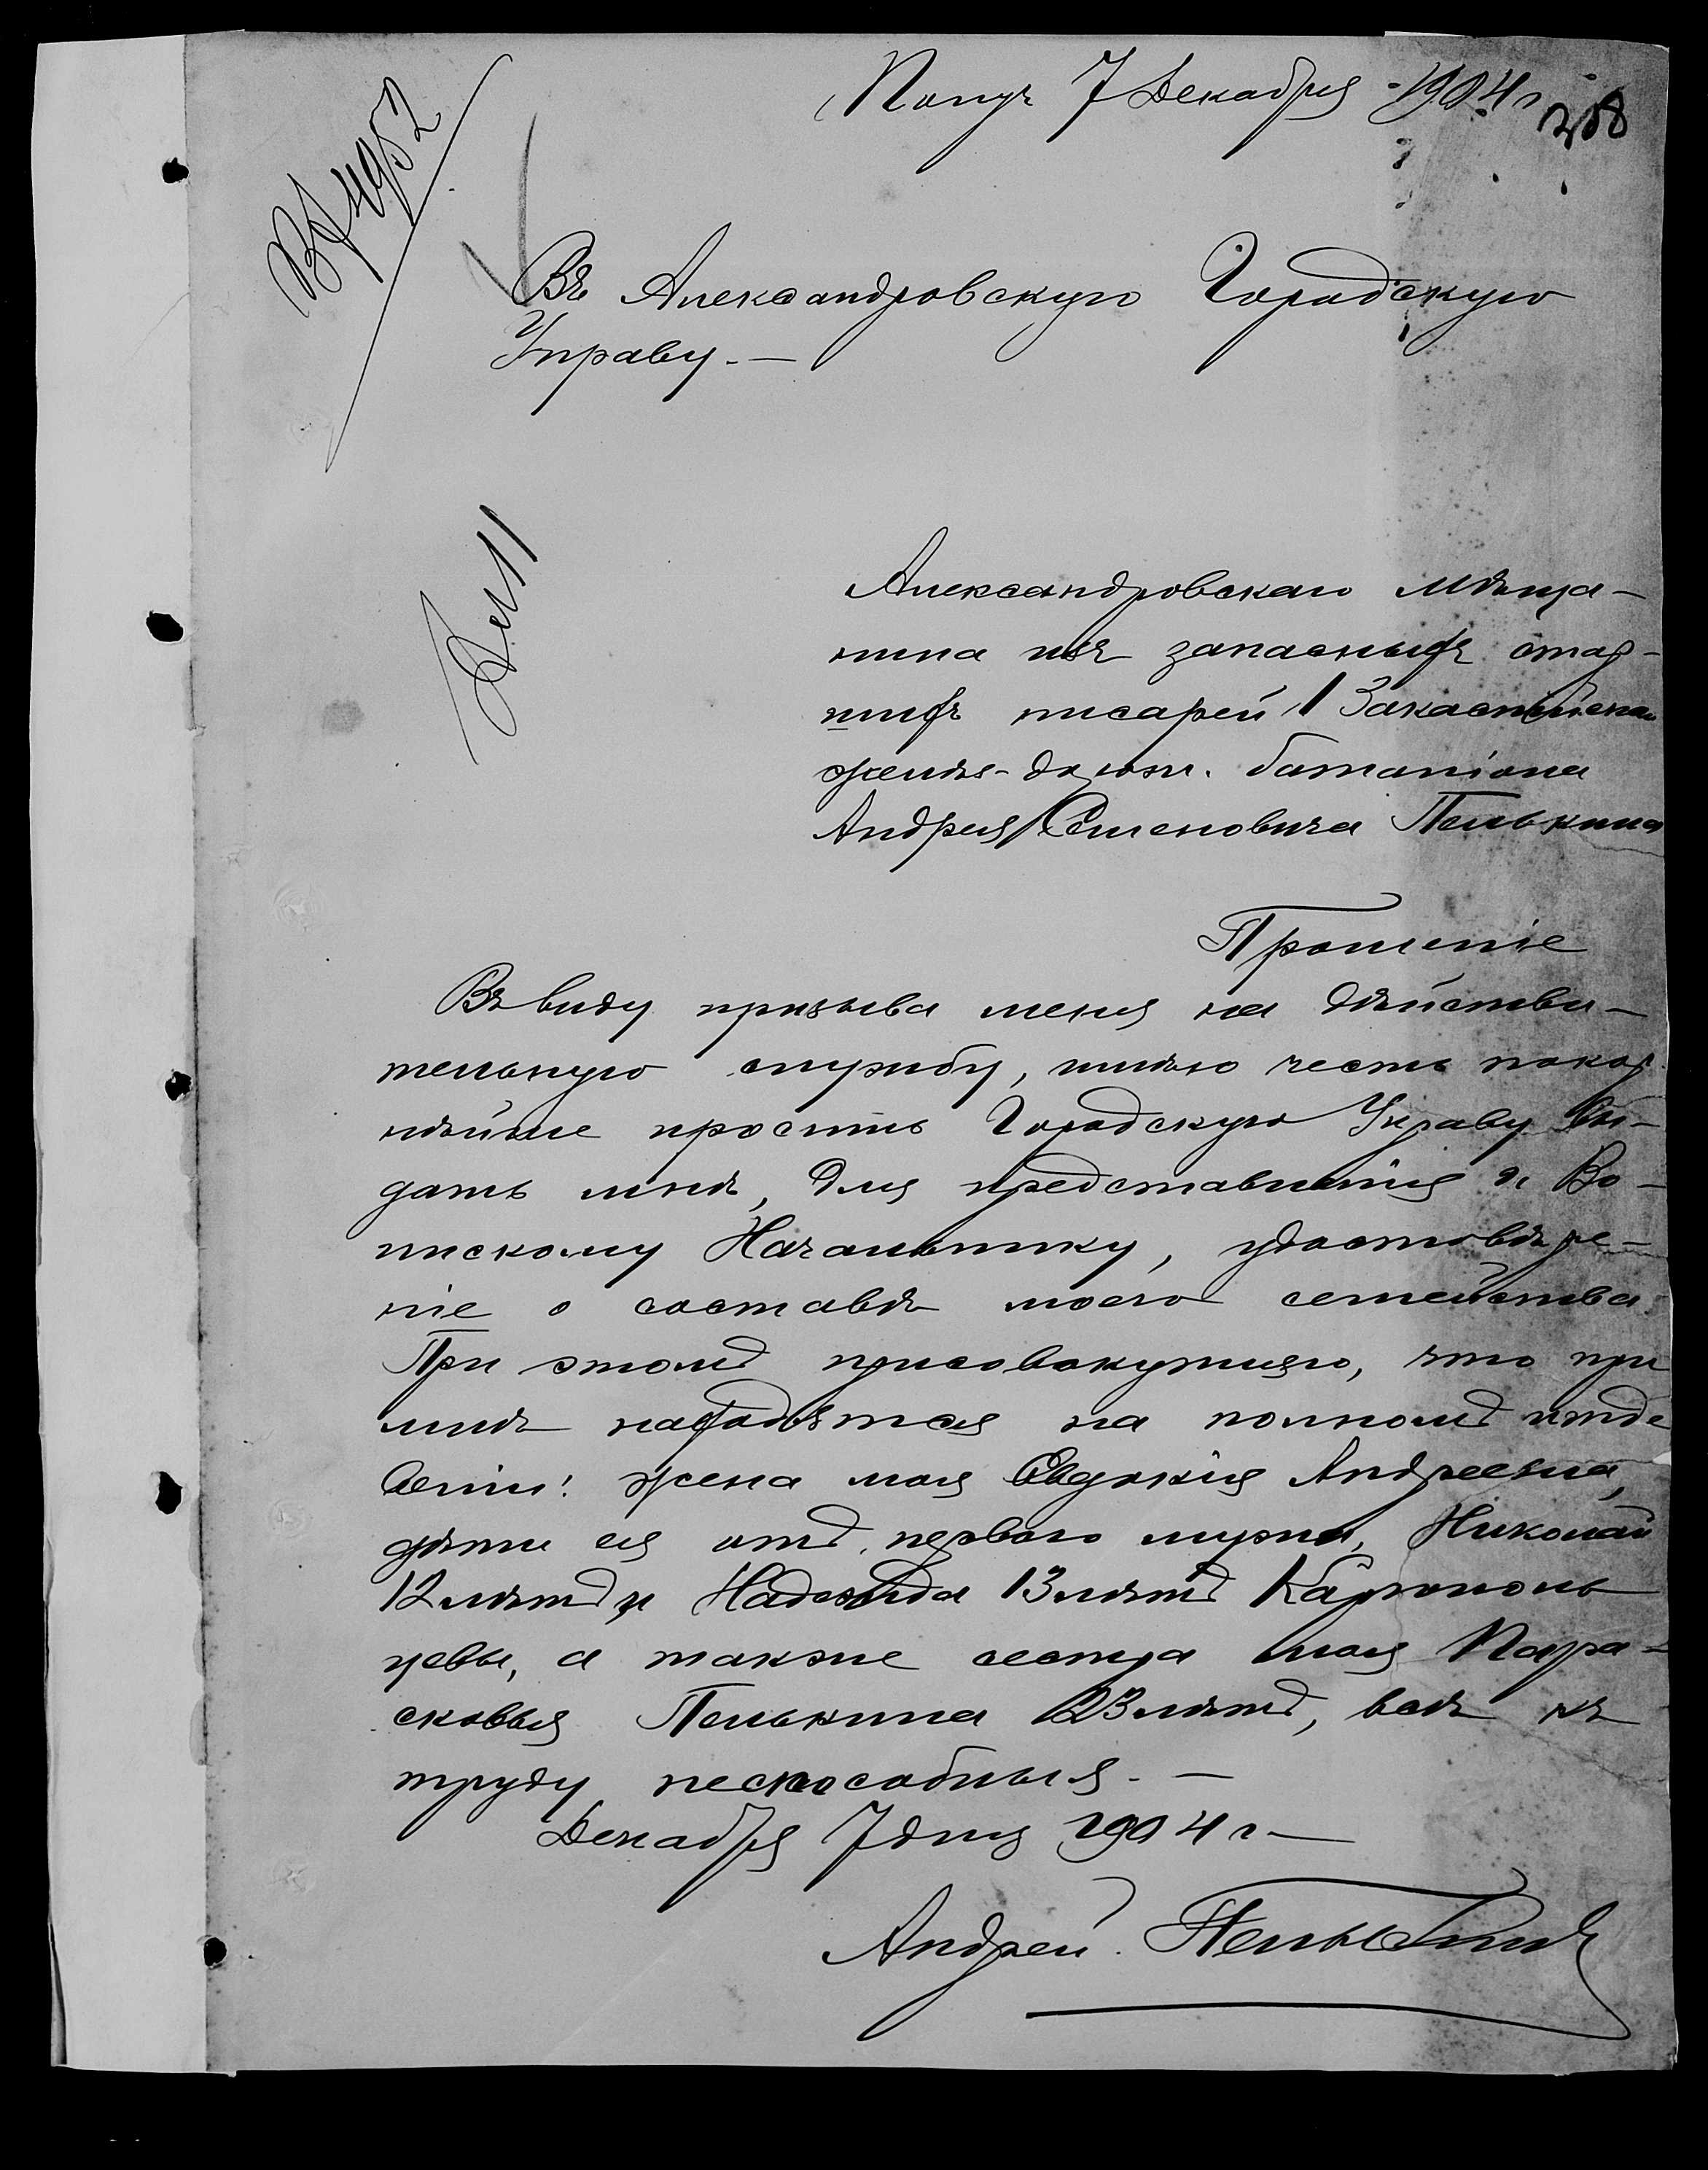 Получ 7 Декабря 1904 г
208
Въ Александровскую Городскую
Управу. —
Александровскаго мѣща-
нина изъ запасныхъ стар-
шихъ писарей 1 Закаспійскаго
желѣз-дорожн. баталіона
Андрея Семеновича Пелькина
Прошеніе
Въ виду призыва меня на дѣйстви-
тельную службу, имѣю честь покор-
нѣйше просить Городскую Управу вы-
дать мнѣ, для представленія Во-
инскому Начальнику, удостовѣре-
ніе о составѣ моего семейства.
При этомъ присовокупляю, что при
мнѣ находятся на полномъ иждe
веніи: жена моя Евдокія Андреевна,
дѣти ея отъ перваго мужа, Николай
12 лѣтъ и Надежда 13 лѣтъ
а также сестра моя Пара-
сковья Пелькина 23 лѣтъ, всѣ къ
труду неспособныя. —
Декабря 7 дня 1904 г —
Андрей Пелькинъ